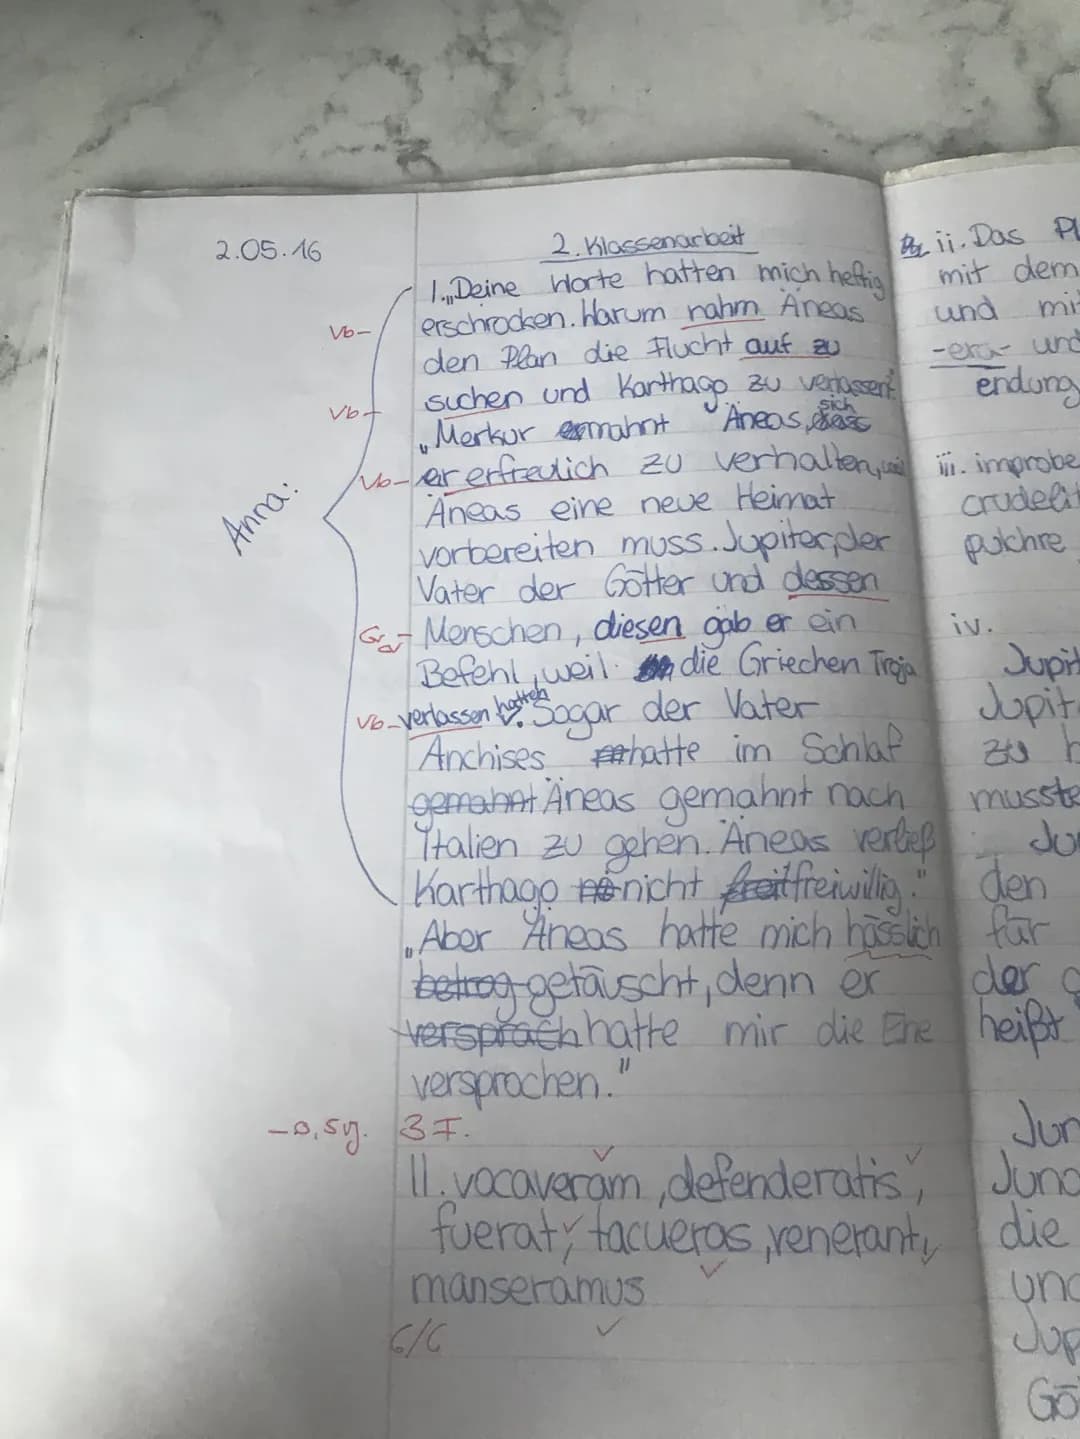 2.05.16
2. Klassenarbeit
I. „Deine Worte hatten mich heftig
Vb-
erschrocken. Warum nahm Äneas
den Plan die Flucht auf zu
Vb-
suchen und Karthago zu verlassen?"
„Merkur ermahnt Äneas, sich
Vb-
er erfreulich zu verhalten, weil
Anna:
Äneas eine neue Heimat
vorbereiten muss. Jupiter, der
Vater der Götter und dessen
Gr-
Menschen, diesen gab er ein
Befehl, weil die Griechen Troja
Vb-
verlassen hatten. Sogar der Vater
Anchises hatte im Schlaf
gemahnt Äneas gemahnt nach
Italien zu gehen. Äneas verließ
Karthago nicht freiwillig."
„Aber Äneas hatte mich hässlich
betrog getäuscht, denn er
versprach hatte mir die Ehe
versprochen."
3 F.
II. vocaveram, defenderatis,
fuerat, tacueras, venerant,
manseramus
6/6
ii. Das Pl
mit dem
und mi
-era- und
endung
iii. improbe
crudelit
pulchre
iv.
Jupit
Jupit
zu h
musste
Ju
den
für
der g
heißt
Jun
Juno
die
und
Jup
Gö